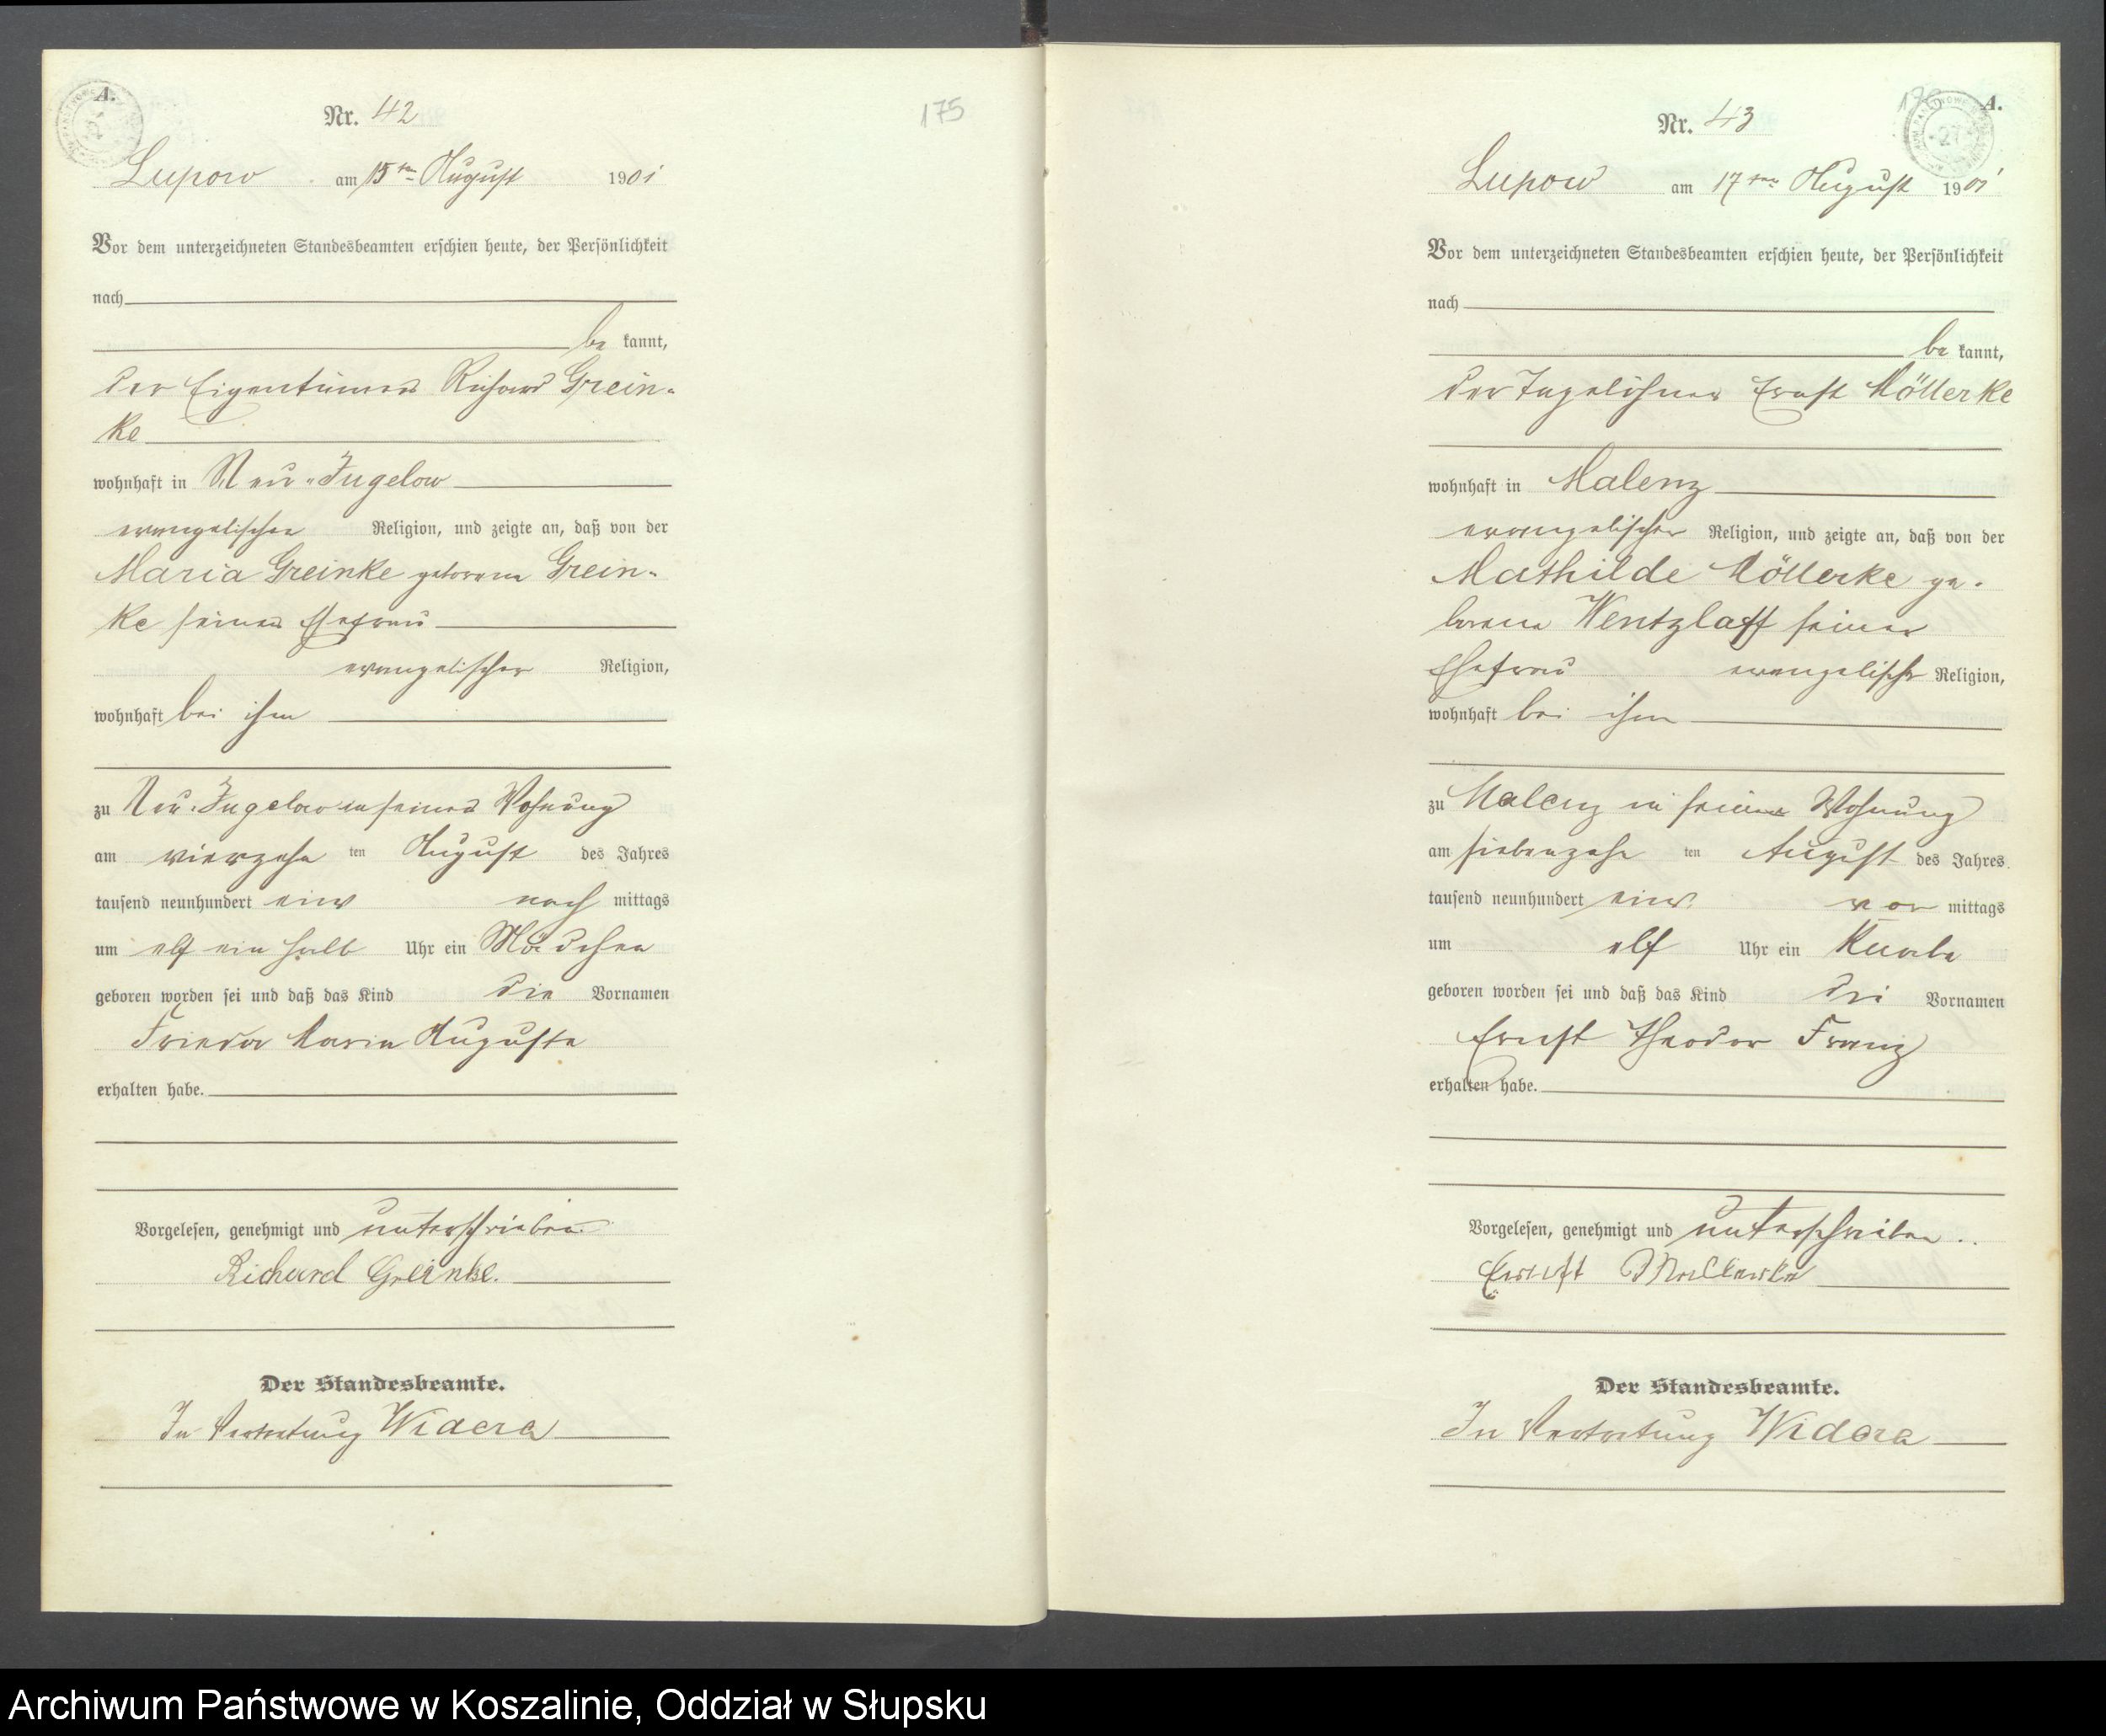 A.
Nr. 42
175
Lupow am 15ten August 1901
Vor dem unterzeichneten Standesbeamten erschien heute, der Persönlichkeit
nach
be kannt,
der Eigentümer Richard Grein-
ke
wohnhaft in Neu-Jugelow
evangelischer Religion, und zeigte an, daß von der
Maria Greinke geborene Grein-
ke seiner Ehefrau
evangelischer Religion,
wohnhaft bei ihm
zu Neu-Jugelow in seiner Wohnung
am vierzehn ten August des Jahres
tausend neunhundert eins nach mittags
um elf ein halb Uhr ein Mädchen
geboren worden sei und daß das Kind die Vornamen
Frieda Maria Auguste
erhalten habe.
Vorgelesen, genehmigt und unterschrieben
Richard Greinke.
Der Standesbeamte.
In Vertretung Widera
A.
Nr. 43
27
Lupow am 17ten August 1901
Vor dem unterzeichneten Standesbeamten erschien heute, der Persönlichkeit
nach
be kannt,
der Tagelöhner Ernst Möllerke
wohnhaft in Malenz
evangelischer Religion, und zeigte an, daß von der
Mathilde Möllerke ge-
borene Wentzlaff seiner
Ehefrau evangelischer Religion,
wohnhaft bei ihm
zu Malenz in seiner Wohnung
am siebenzehn ten August des Jahres
tausend neunhundert eins vor mittags
um elf Uhr ein Knabe
geboren worden sei und daß das Kind die Vornamen
Ernst Theodor Franz
erhalten habe.
Vorgelesen, genehmigt und unterschrieben..
Ernst
Der Standesbeamte.
In Vertretung Widera
Archiwum Państwowe w Koszalinie, Oddział w Słupsku